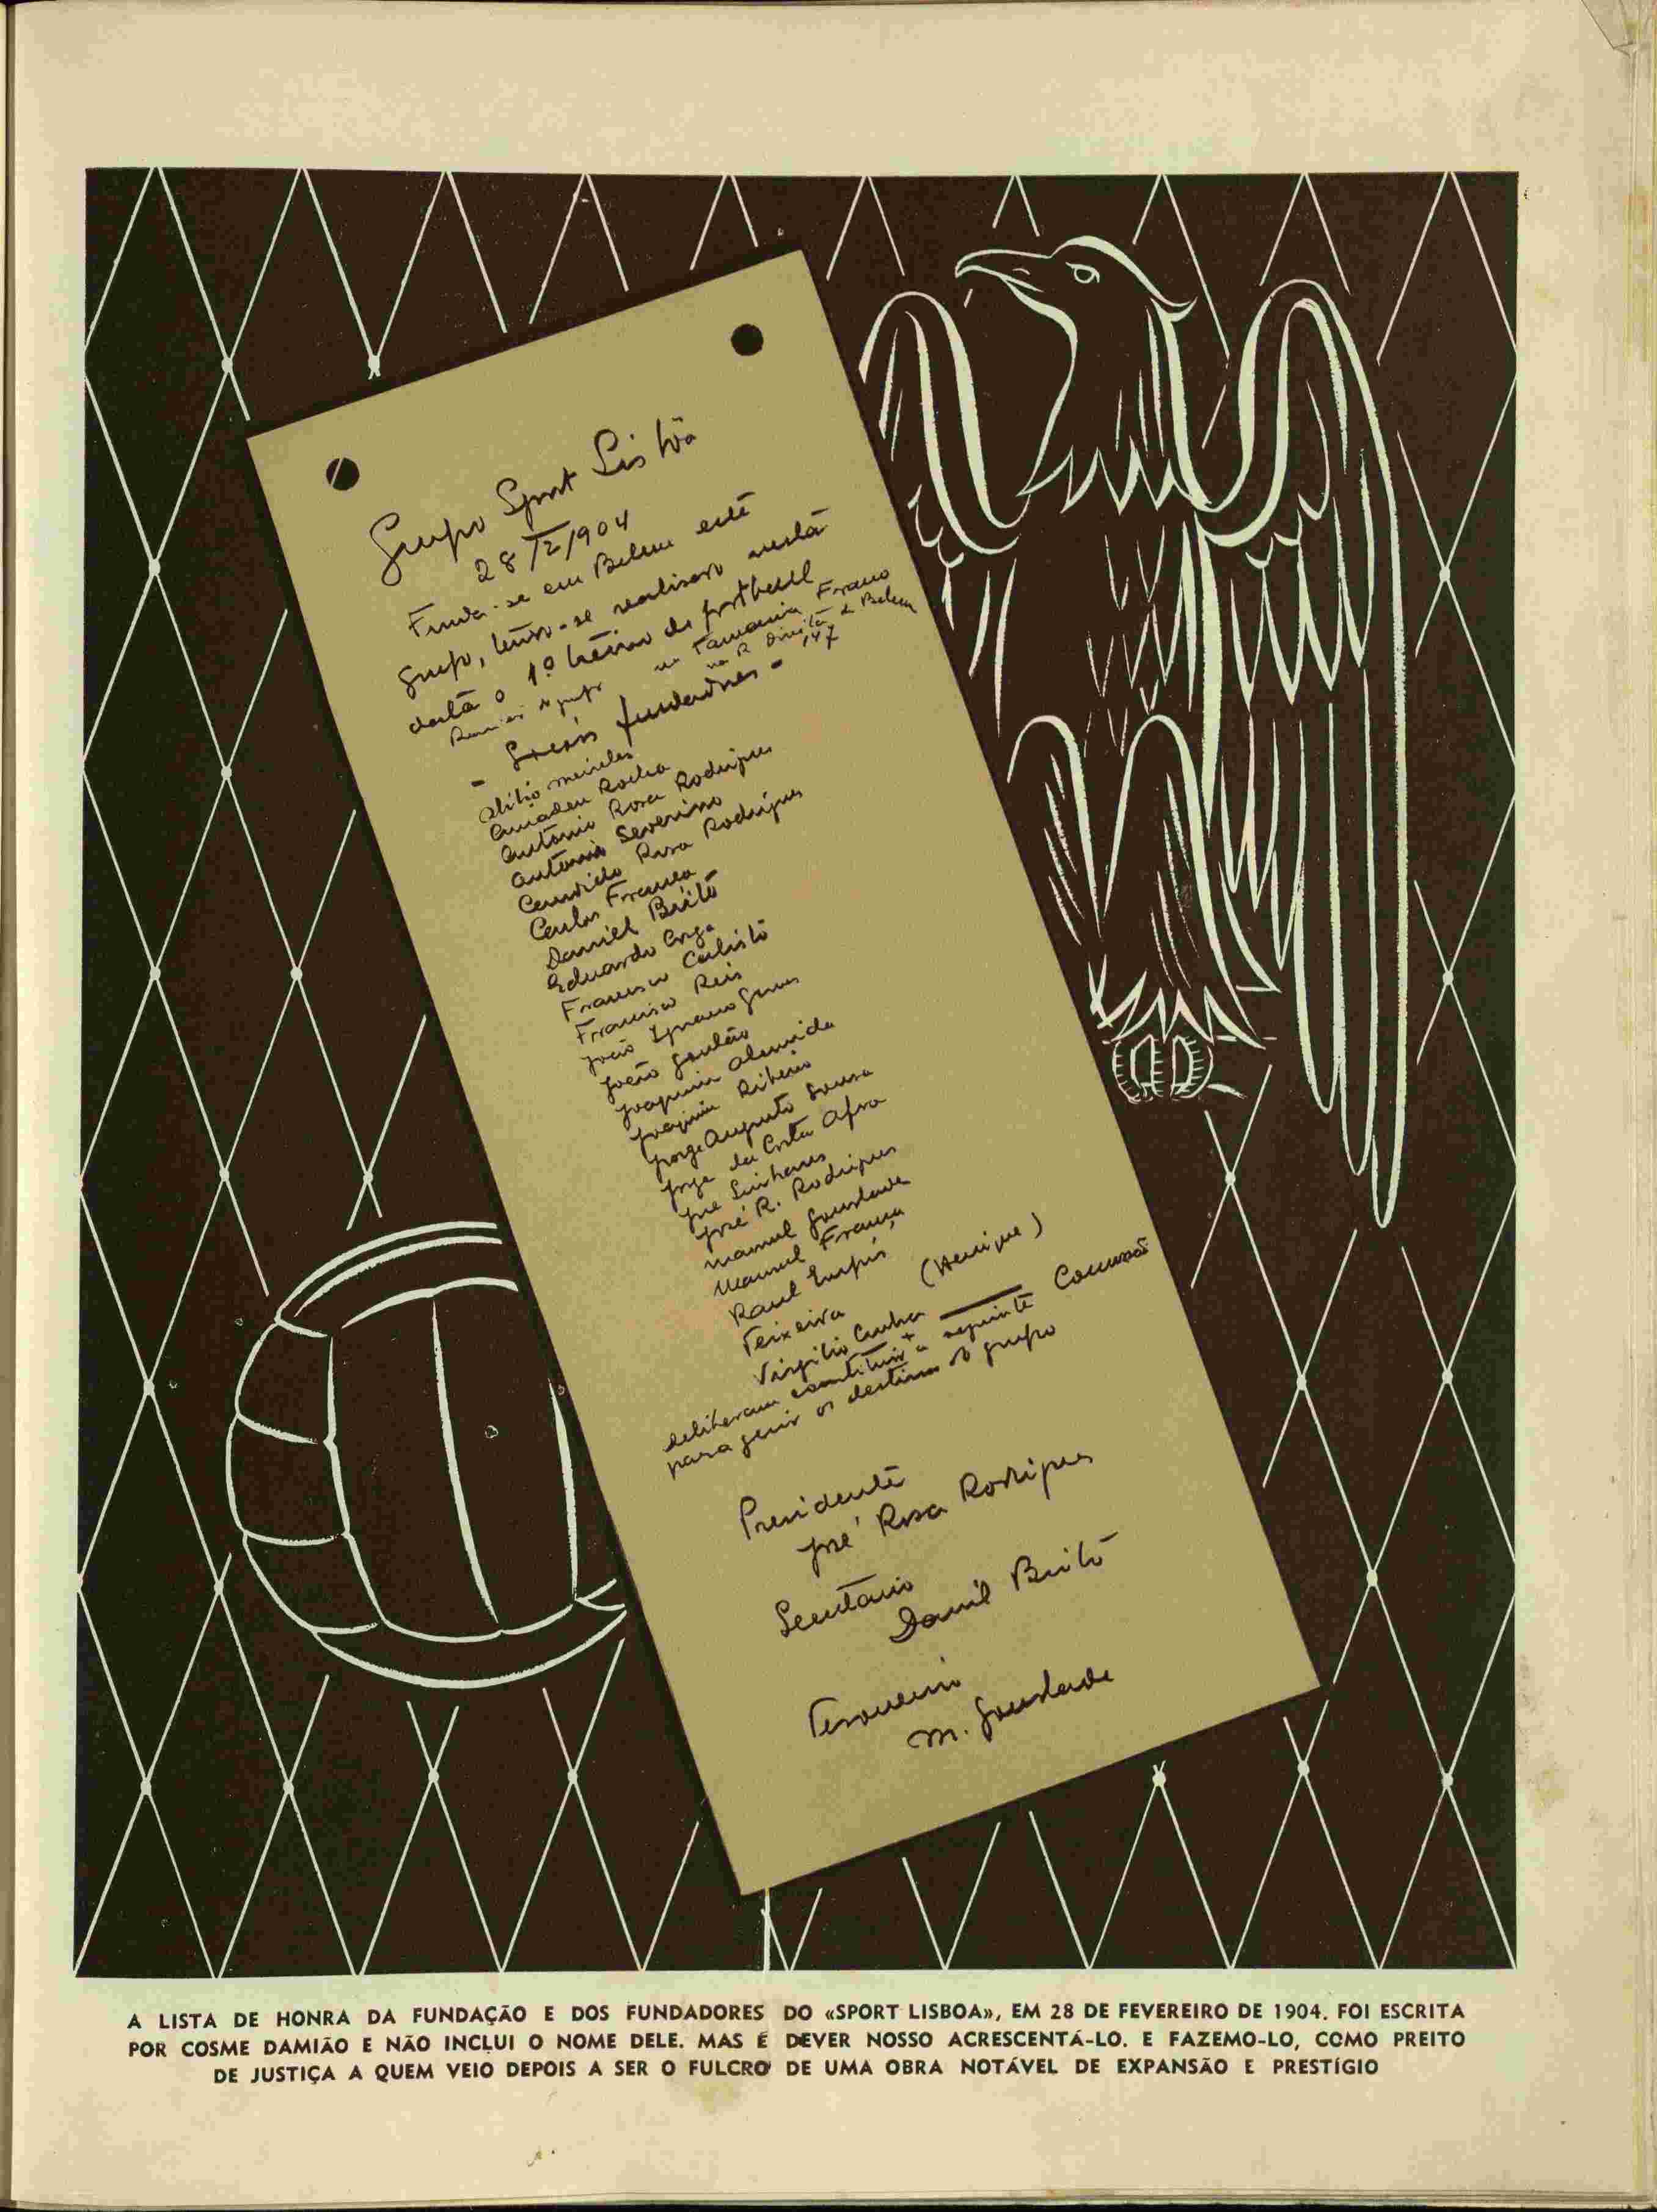 Grupo Sport Lisbôa
28/2/1904
Funda-se em Belem este
grupo, tendo-se realisado nesta
data o 1º treino de football
na Farmacia Franco
na R. Direita de Belem
147
- Socios fundadores -
Abilio Meireles
Amadeu Rocha
Antonio Rosa Rodrigues
Antonio Severino
Candido Rosa Rodrigues
Carlos França
Daniel Brito
Eduardo Corga
Francisco Calisto
Francisco Reis
João Ignacio Gomes
João Goulão
Joaquim Almeida
Joaquim Ribeiro
Jorge Augusto Sousa
Jorge da Costa Afra
José Linhares
José R. Rodrigues
Manuel Gourlade
Manuel França
Raul Empis
Teixeira (Henrique)
Virgilio Cunha
deliberam constituir a seguinte Comissão
para gerir os destinos do grupo
Presidente
José Rosa Rodrigues
Secretario
Daniel Brito
Tesoureiro
M. Gourlade
A LISTA DE HONRA DA FUNDAÇÃO E DOS FUNDADORES DO «SPORT LISBOA», EM 28 DE FEVEREIRO DE 1904. FOI ESCRITA
POR COSME DAMIÃO E NÃO INCLUI O NOME DELE. MAS É DEVER NOSSO ACRESCENTÁ-LO. E FAZEMO-LO, COMO PREITO
DE JUSTIÇA A QUEM VEIO DEPOIS A SER O FULCRO DE UMA OBRA NOTÁVEL DE EXPANSÃO E PRESTÍGIO